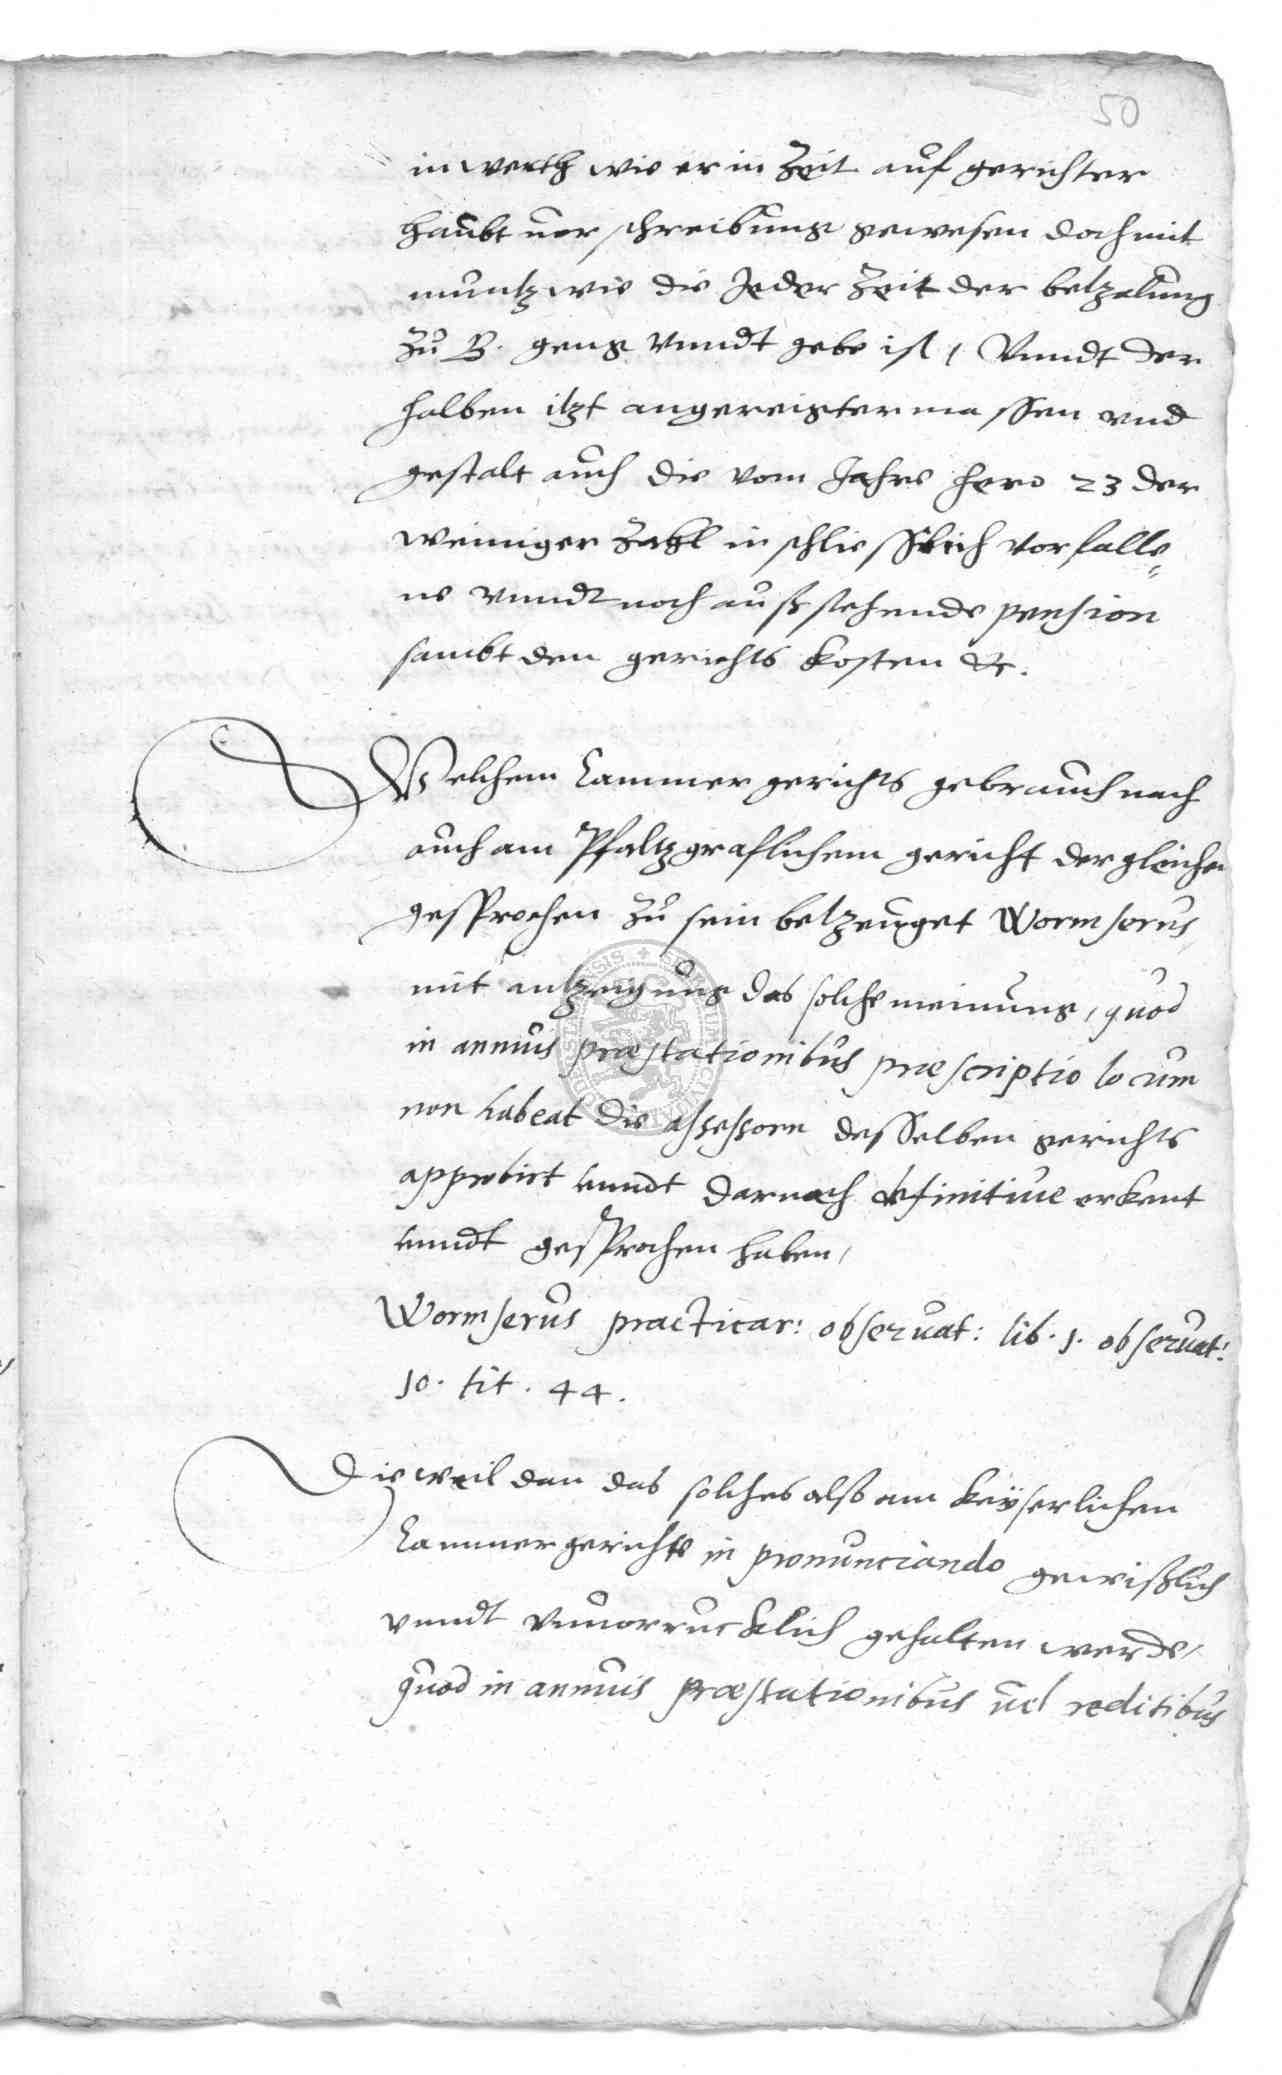 50
in werth wie er in Zeit auf gerichter
haubt uorschreibung gewesen doch mit
muntz wie die Jeder Zeit der betzalung
zu B. geng vnndt gebe ist, Vnndt der
halben itzt angereigter massen vnd
gestalt auch die vom Jahre hero 23 der
weiniger Zahl inschliesslich vorfalle-
ne vnndt noch außstehende pension
sambt den gerichts kosten etc.
Welchem Cammergerichts gebrauch nach
auch am Pfaltzgraflichem gericht dergleichen
gesprochen zu sein betzeuget Wormserus,
mit antzeigung das solche meinung, quod
in annuis præstationibus præscriptio locum
non habeat die assessorn desselben gerichts
approbirt vnndt darnach definitiue erkent
vnndt gesprochen haben,
Wormserus practicar: obseruat: lib. 1. obseruat:
10. tit. 44.
Die weil dan das solches also am keyserlichen
Cammergerichte in pronunciando gewißlich
vnndt vnuorrucklich gehalten werde,
quod in annuis præstationibus uel reditibus